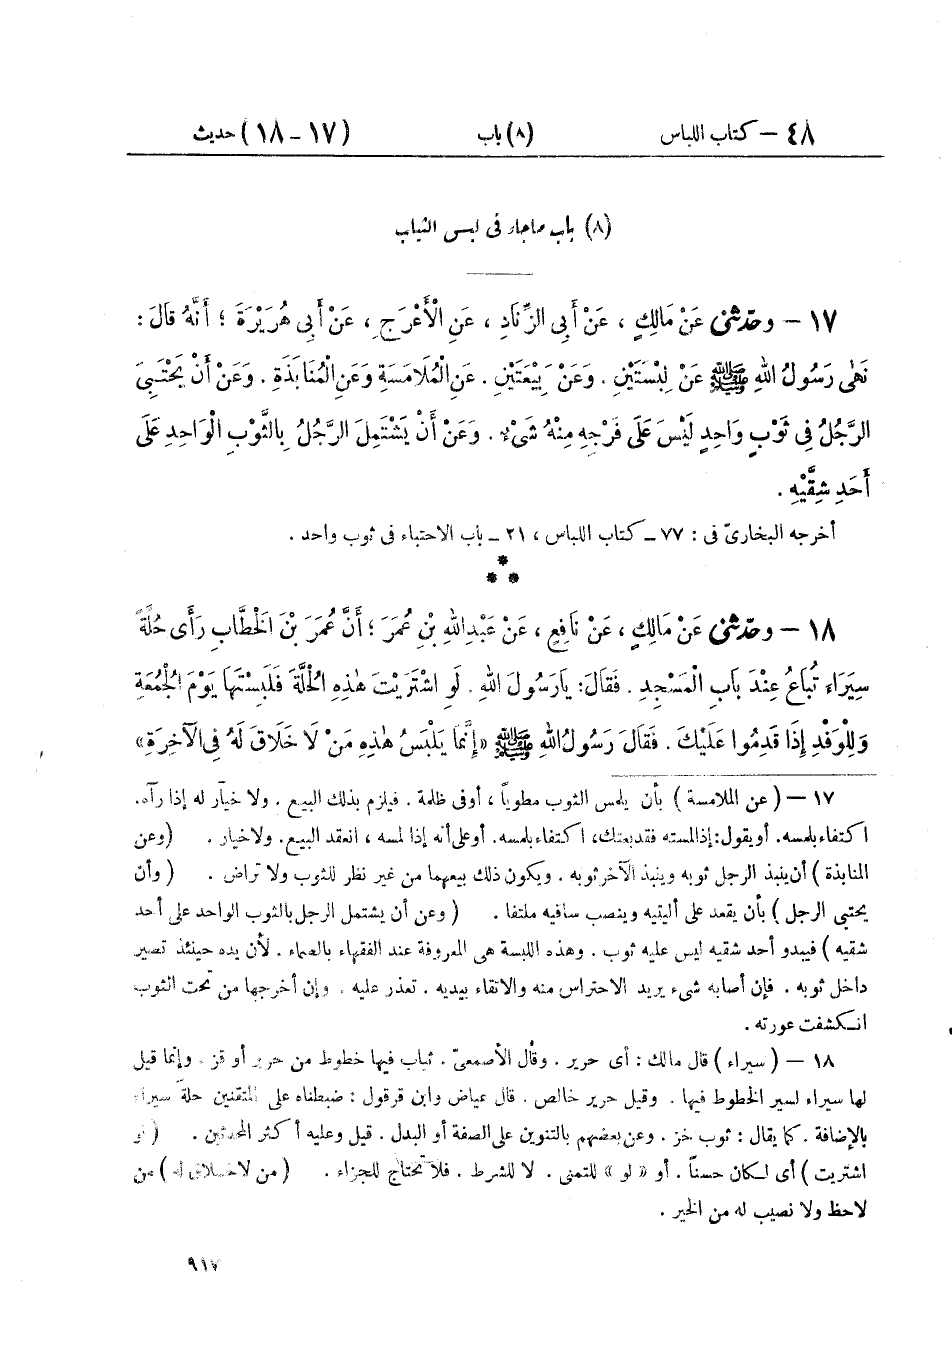 ٤٨ – كتاب اللباس (٨) باب (١٧ – ١٨) حديث
(٨) باب ماجاء فى لبس الثياب
١٧ – وحدّثنى عَنْ مَالِكٍ ، عَنْ أَبِى الزِّنَادِ ، عَنِ الْأَعْرَجِ ، عَنْ أَبِى هُرَيْرَةَ ؛ أَنَّهُ قَالَ :
نَهَى رَسُولُ اللهِ ﷺ عَنْ لِبْسَتَيْنِ . وَعَنْ بَيْعَتَيْنِ . عَنِ الْمُلَامَسَةِ وَعَنِ الْمُنَابَذَةِ . وَعَنْ أَنْ يَحْتَبِىَ
الرَّجُلُ فِى ثَوْبٍ وَاحِدٍ لَيْسَ عَلَى فَرْجِهِ مِنْهُ شَىْءٌ . وَعَنْ أَنْ يَشْتَمِلَ الرَّجُلُ بِالثَّوْبِ الْوَاحِدِ عَلَى
أَحَدِ شِقَّيْهِ .
أخرجه البخارىّ فى : ٧٧ – كتاب اللباس ، ٢١ – باب الاحتباء فى ثوب واحد .
١٨ – وحدّثنى عَنْ مَالِكٍ ، عَنْ نَافِعٍ ، عَنْ عَبْدِ اللهِ بْنِ عُمَرَ ؛ أَنَّ عُمَرَ بْنَ الْخَطَّابِ رَأَى حُلَّةً
سِيَرَاءَ تُبَاعُ عِنْدَ بَابِ الْمَسْجِدِ . فَقَالَ : يَا رَسُولَ اللهِ . لَوِ اشْتَرَيْتَ هٰذِهِ الْحُلَّةَ فَلَبِسْتَهَا يَوْمَ الْجُمُعَةِ
وَلِلْوَفْدِ إِذَا قَدِمُوا عَلَيْكَ . فَقَالَ رَسُولُ اللهِ ﷺ «إِنَّمَا يَلْبَسُ هٰذِهِ مَنْ لَا خَلَاقَ لَهُ فِى الْآخِرَةِ»
١٧ – ( عن الملامسة ) بأن يلمس الثوب مطوياً ، أو فى ظلمة . فيلزم بذلك البيع . ولا خيار له إذا رآه.
اكتفاء بلمسه. أو يقول: إذا لمسته فقد بعتك، اكتفاء بلمسه. أو على أنه إذا لمسه ، انعقد البيع. ولا خيار . (وعن
المنابذة ) أن ينبذ الرجل ثوبه وينبذ الآخر ثوبه . ويكون ذلك بيعهما من غير نظر للثوب ولا تراض . ( وأن
يحتبى الرجل ) بأن يقعد على أليتيه وينصب ساقيه ملتفا . ( وعن أن يشتمل الرجل بالثوب الواحد على أحد
شقيه ) فيبدو أحد شقيه ليس عليه ثوب . وهذه اللبسة هى المعروفة عند الفقهاء بالصماء . لأن يده حينئذ تصير
داخل ثوبه . فإن أصابه شىء يريد الاحتراس منه والاتقاء بيديه . تعذر عليه . وإن أخرجها من تحت الثوب
انكشفت عورته .
١٨ – ( سيراء ) قال مالك : أى حرير . وقال الأصمعىّ . ثياب فيها خطوط من حرير أو قز . وإنما قيل
لها سيراء لسير الخطوط فيها . وقيل حرير خالص . قال عياض وابن قرقول : ضبطناه على المتقنين حلة سيراء
بالإضافة . كما يقال : ثوب خز . وعن بعضهم بالتنوين على الصفة أو البدل . قيل وعليه أكثر المحدثين . ( لو
اشتريت ) أى لكان حسناً . أو « لو » للتمنى . لا للشرط . فلا تحتاج للجزاء . ( من لا خلاق له ) من
لاحظ ولا نصيب له من الخير .
٩١٧